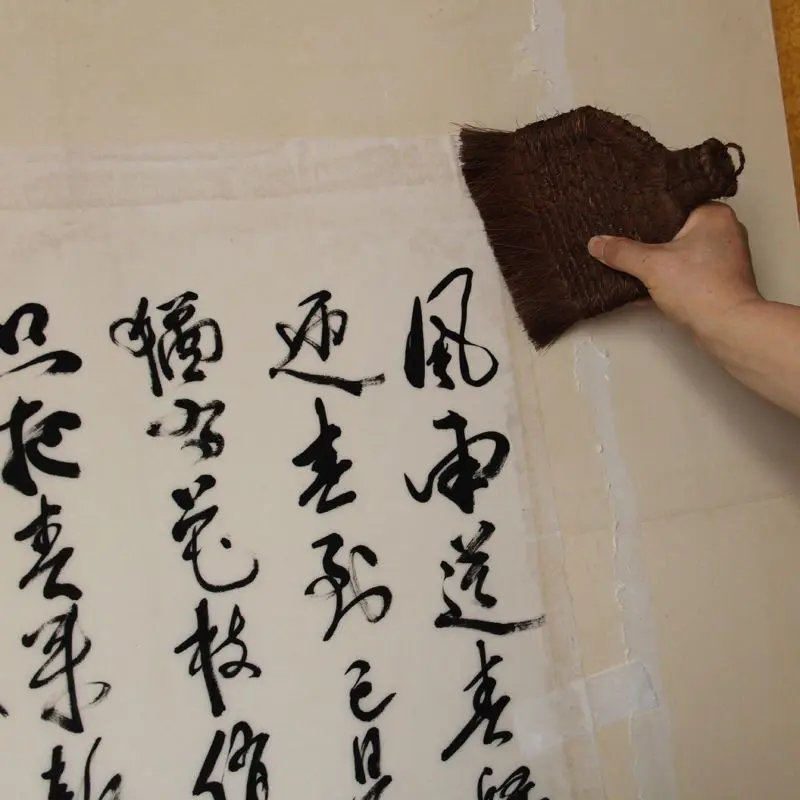 風雨送春歸
迎春到已是
猶有花枝俏
只把春来報